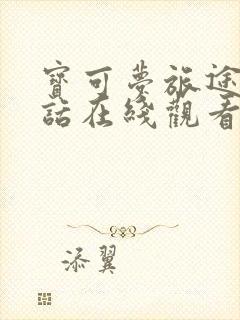 寶可夢旅途
話在綫觀看
添翼